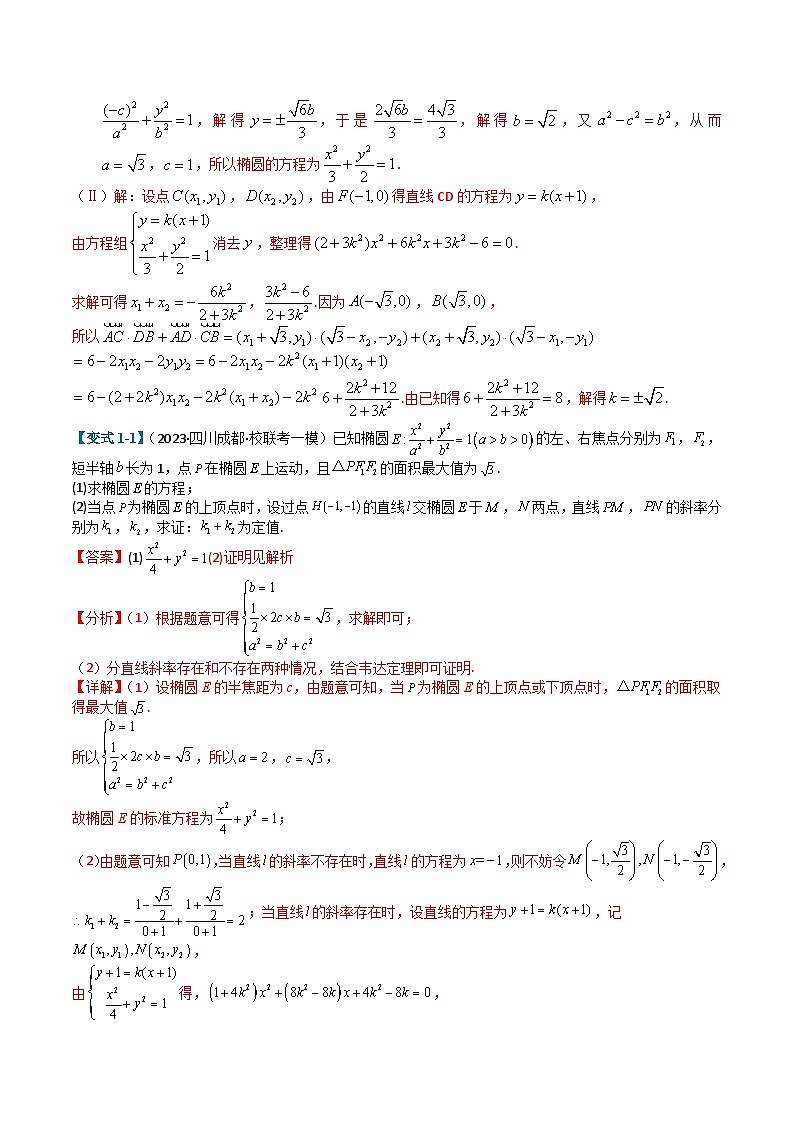 (-c)²/a² + y²/b² = 1，解得 y = ±√6b/3，于是 2√6b/3 = 4√3/3，解得 b = √2，又 a² − c² = b²，从而
a = √3，c = 1，所以椭圆的方程为 x²/3 + y²/2 = 1.
（Ⅱ）解：设点 C(x₁, y₁)，D(x₂, y₂)，由 F(−1,0) 得直线 CD 的方程为 y = k(x+1)，
由方程组 { y = k(x+1) ; x²/3 + y²/2 = 1 消去 y，整理得 (2+3k²)x² + 6k²x + 3k² − 6 = 0.
求解可得 x₁ + x₂ = −6k²/(2+3k²)，(3k²−6)/(2+3k²).因为 A(−√3,0)，B(√3,0)，
所以 AC · DB + AD · CB = (x₁+√3, y₁)·(√3−x₂, −y₂) + (x₂+√3, y₂)·(√3−x₁, −y₁)
= 6 − 2x₁x₂ − 2y₁y₂ = 6 − 2x₁x₂ − 2k²(x₁+1)(x₂+1)
= 6 − (2+2k²)x₁x₂ − 2k²(x₁+x₂) − 2k² 6 + (2k²+12)/(2+3k²).由已知得 6 + (2k²+12)/(2+3k²) = 8，解得 k = ±√2.
【变式1-1】（2023·四川成都·校联考一模）已知椭圆 E: x²/a² + y²/b² = 1(a > b > 0) 的左、右焦点分别为 F₁，F₂，
短半轴 b 长为 1，点 P 在椭圆 E 上运动，且△PF₁F₂ 的面积最大值为 √3.
(1)求椭圆 E 的方程；
(2)当点 P 为椭圆 E 的上顶点时，设过点 H(−1,−1) 的直线 l 交椭圆 E 于 M，N 两点，直线 PM，PN 的斜率分
别为 k₁，k₂，求证：k₁ + k₂ 为定值.
【答案】(1) x²/4 + y² = 1(2)证明见解析
【分析】（1）根据题意可得 { b = 1 ; 1/2 × 2c × b = √3 ; a² = b² + c² ，求解即可；
（2）分直线斜率存在和不存在两种情况，结合韦达定理即可证明.
【详解】（1）设椭圆 E 的半焦距为 c，由题意可知，当 P 为椭圆 E 的上顶点或下顶点时，△PF₁F₂ 的面积取
得最大值 √3.
所以 { b = 1 ; 1/2 × 2c × b = √3 ; a² = b² + c² ，所以 a = 2，c = √3，
故椭圆 E 的标准方程为 x²/4 + y² = 1；
（2)由题意可知 P(0,1),当直线 l 的斜率不存在时,直线 l 的方程为 x=−1,则不妨令 M(−1, √3/2), N(−1, −√3/2)，
∴ k₁ + k₂ = (1−√3/2)/(0+1) + (1+√3/2)/(0+1) = 2；当直线 l 的斜率存在时，设直线的方程为 y + 1 = k(x+1)，记
M(x₁, y₁), N(x₂, y₂)，
由 { y + 1 = k(x+1) ; x²/4 + y² = 1 得，(1+4k²)x² + (8k² − 8k)x + 4k² − 8k = 0，